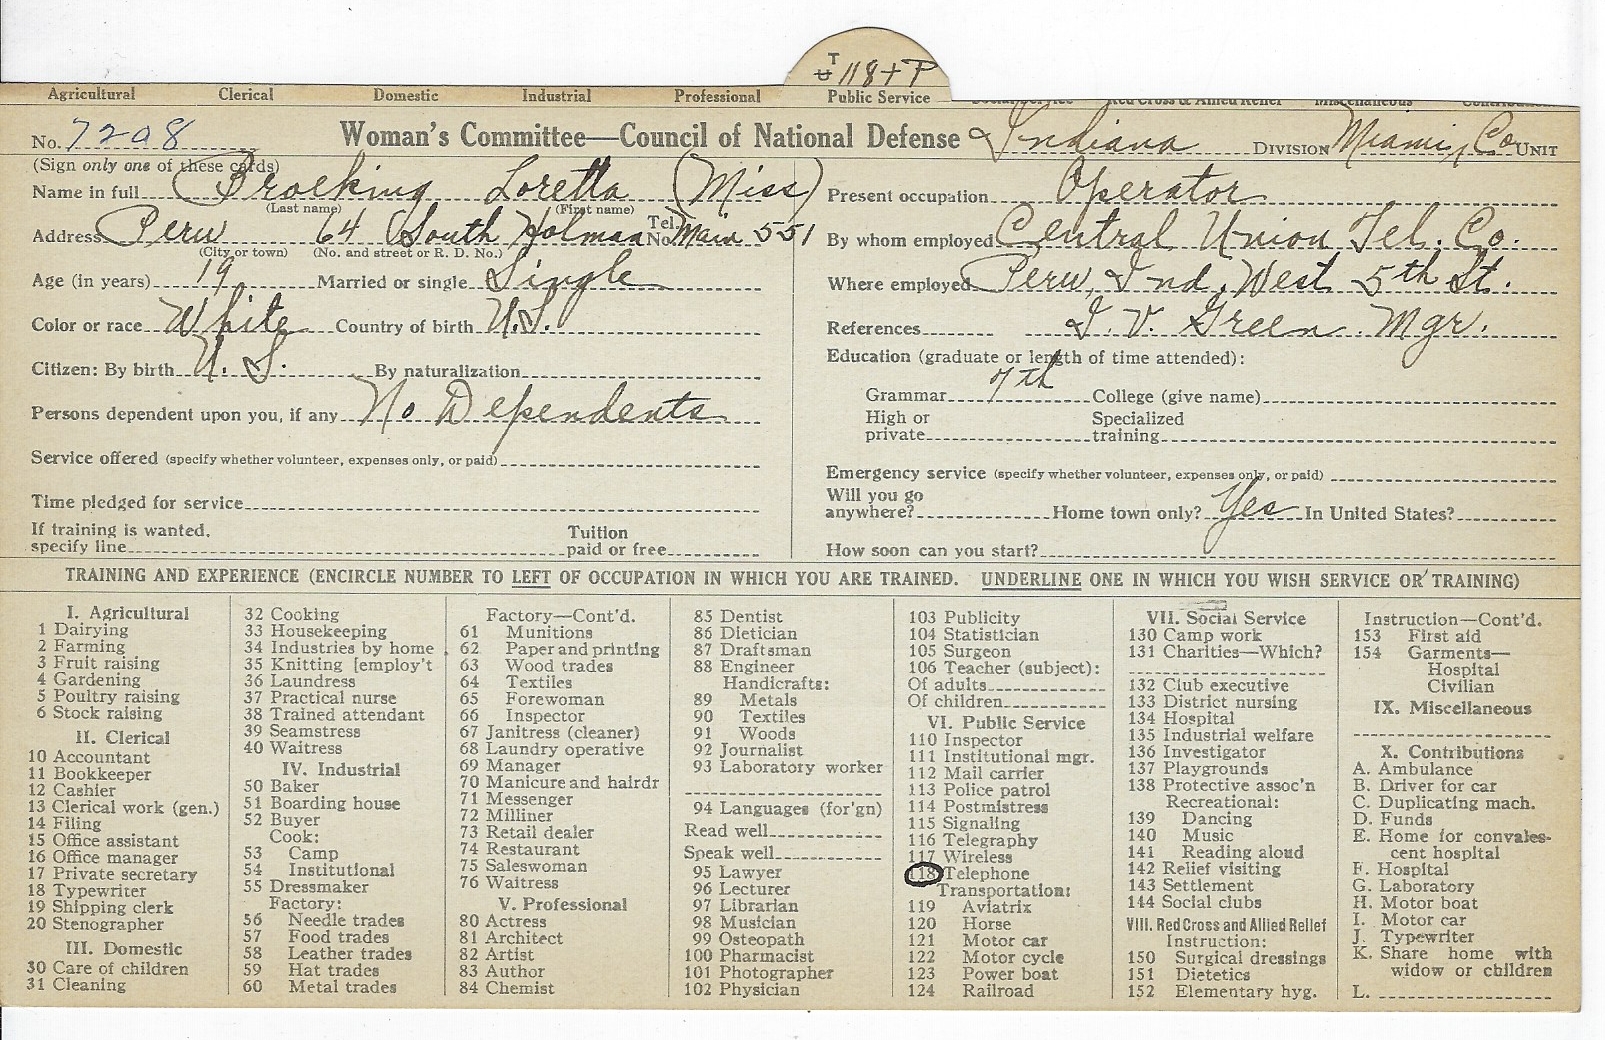 T
U 118+P
Agricultural Clerical Domestic Industrial Professional Public Service Social Service Red Cross & Allied Relief Miscellaneous
No. 7298 Woman's Committee—Council of National Defense Indiana DIVISION Miami, Co. UNIT
(Sign only one of these cards)
Name in full Broeking Loretta (Miss)
(Last name) (First name)
Address Peru 64 South Holman Tel. No. Main 551
(City or town) (No. and street or R. D. No.)
Age (in years) 19 Married or single Single
Color or race White Country of birth U.S.
Citizen: By birth U. S. By naturalization
Persons dependent upon you, if any No Dependents
Service offered (specify whether volunteer, expenses only, or paid)
Time pledged for service
If training is wanted, specify line Tuition paid or free
Present occupation Operator
By whom employed Central Union Tel. Co.
Where employed Peru, Ind. West 5th St.
References I. V. Green Mgr.
Education (graduate or length of time attended):
Grammar 7th College (give name)
High or private Specialized training
Emergency service (specify whether volunteer, expenses only, or paid)
Will you go anywhere? Home town only? Yes In United States?
How soon can you start?
TRAINING AND EXPERIENCE (ENCIRCLE NUMBER TO LEFT OF OCCUPATION IN WHICH YOU ARE TRAINED. UNDERLINE ONE IN WHICH YOU WISH SERVICE OR TRAINING)
I. Agricultural
1 Dairying
2 Farming
3 Fruit raising
4 Gardening
5 Poultry raising
6 Stock raising
II. Clerical
10 Accountant
11 Bookkeeper
12 Cashier
13 Clerical work (gen.)
14 Filing
15 Office assistant
16 Office manager
17 Private secretary
18 Typewriter
19 Shipping clerk
20 Stenographer
III. Domestic
30 Care of children
31 Cleaning
32 Cooking
33 Housekeeping
34 Industries by home
35 Knitting [employ't
36 Laundress
37 Practical nurse
38 Trained attendant
39 Seamstress
40 Waitress
IV. Industrial
50 Baker
51 Boarding house
52 Buyer
Cook:
53 Camp
54 Institutional
55 Dressmaker
Factory:
56 Needle trades
57 Food trades
58 Leather trades
59 Hat trades
60 Metal trades
Factory—Cont'd.
61 Munitions
62 Paper and printing
63 Wood trades
64 Textiles
65 Forewoman
66 Inspector
67 Janitress (cleaner)
68 Laundry operative
69 Manager
70 Manicure and hairdr
71 Messenger
72 Milliner
73 Retail dealer
74 Restaurant
75 Saleswoman
76 Waitress
V. Professional
80 Actress
81 Architect
82 Artist
83 Author
84 Chemist
85 Dentist
86 Dietician
87 Draftsman
88 Engineer
Handicrafts:
89 Metals
90 Textiles
91 Woods
92 Journalist
93 Laboratory worker
94 Languages (for'gn)
Read well
Speak well
95 Lawyer
96 Lecturer
97 Librarian
98 Musician
99 Osteopath
100 Pharmacist
101 Photographer
102 Physician
103 Publicity
104 Statistician
105 Surgeon
106 Teacher (subject):
Of adults
Of children
VI. Public Service
110 Inspector
111 Institutional mgr.
112 Mail carrier
113 Police patrol
114 Postmistress
115 Signaling
116 Telegraphy
117 Wireless
118 Telephone
Transportation:
119 Aviatrix
120 Horse
121 Motor car
122 Motor cycle
123 Power boat
124 Railroad
VII. Social Service
130 Camp work
131 Charities—Which?
132 Club executive
133 District nursing
134 Hospital
135 Industrial welfare
136 Investigator
137 Playgrounds
138 Protective assoc'n
Recreational:
139 Dancing
140 Music
141 Reading aloud
142 Relief visiting
143 Settlement
144 Social clubs
VIII. Red Cross and Allied Relief
Instruction:
150 Surgical dressings
151 Dietetics
152 Elementary hyg.
Instruction—Cont'd.
153 First aid
154 Garments—
Hospital
Civilian
IX. Miscellaneous
X. Contributions
A. Ambulance
B. Driver for car
C. Duplicating mach.
D. Funds
E. Home for convales-
cent hospital
F. Hospital
G. Laboratory
H. Motor boat
I. Motor car
J. Typewriter
K. Share home with
widow or children
L.